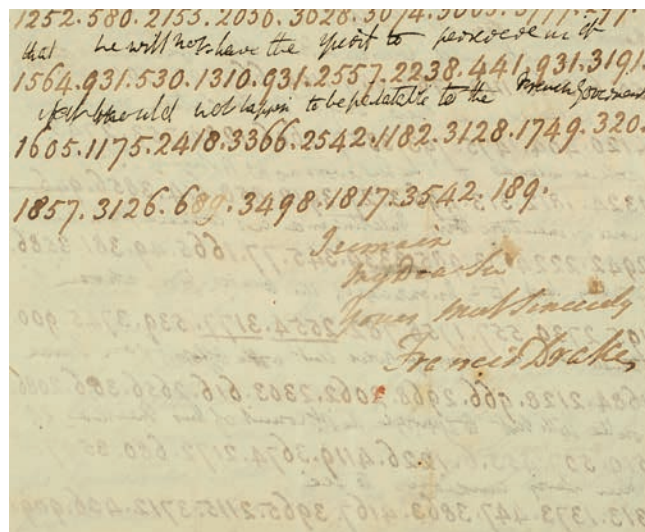 1252.580.2153.2030.3028.3074.3003.3177.277.
that he will not have the spirit to persevere in it
1564.931.530.1310.931.2557.2238.441.931.3191.
if it should not happen to be palatable to the French Government
1605.1175.2418.3366.2542.1182.3128.1749.320.
1857.3126.689.3498.1817.3542.189.
I remain
My Dear Sir
Yours most sincerely
Francis Drake